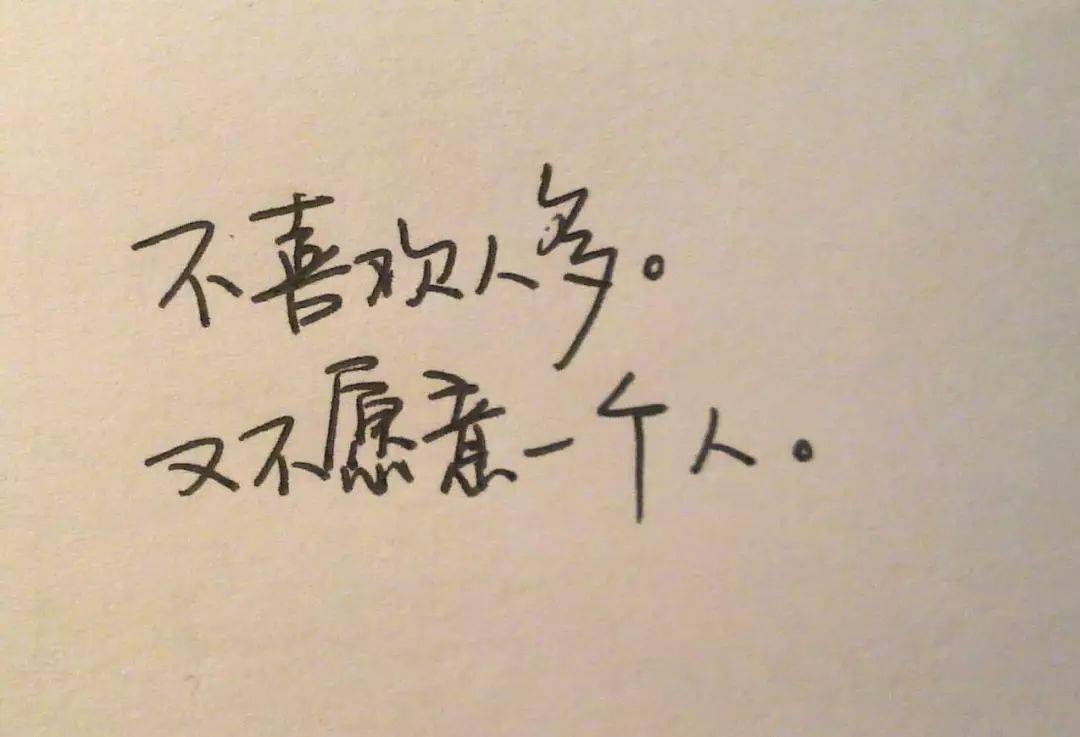 不喜欢人多。
又不愿意一个人。